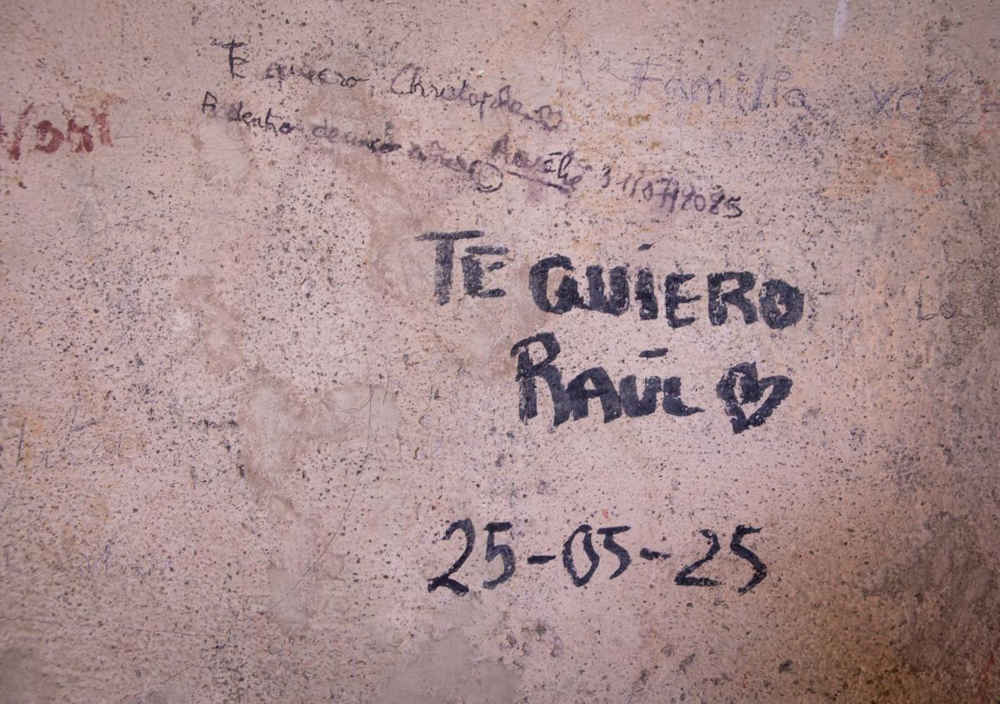 Te quiero, Christophe
Familia
A dentro de unos años
Aurélie 31/07/2025
TE QUIERO
RAÚL
25-05-25